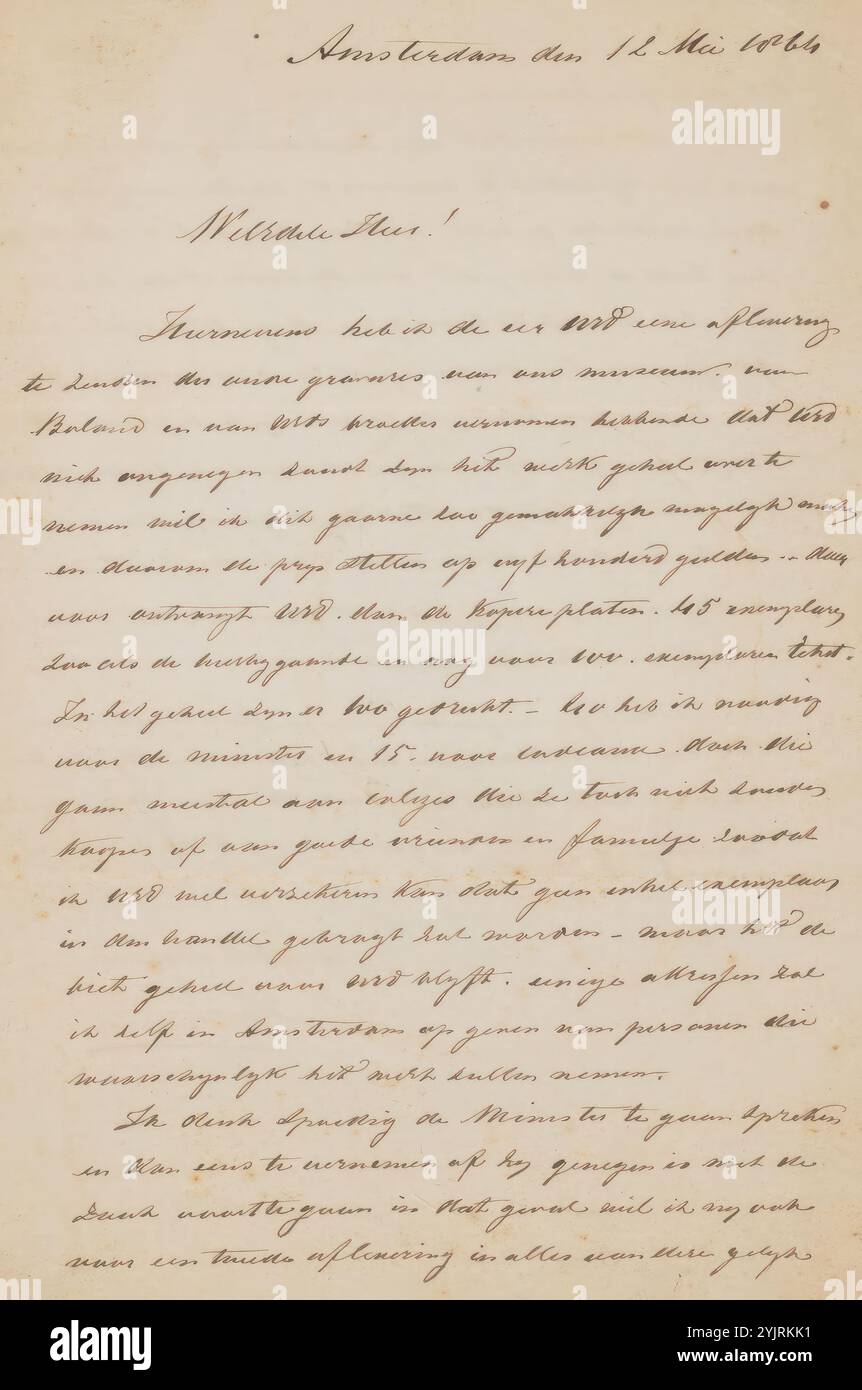 Amsterdam den 12 Mei 1864
WelEdele Heer!
Hiernevens heb ik de eer UEd eene aflevering
te zenden der oude gravures van ons museum. van
Boland en van UEds broeder vernomen hebbende dat UEd
niet ongenegen zoudt zyn het werk geheel over te
nemen wil ik dit gaarne zoo gemakkelyk mogelyk maken
en daarom de prys stellen op vyf honderd gulden. daar
voor ontvangt UEd. dan de kopere platen. 65 exemplaren
zoo als de hierbygaande en nog voor 100. exemplaren tekst.
In het geheel zyn er 100 gedrukt. – 20 heb ik noodig
voor de minister en 15. voor cadeaux. doch die
gaan meestal aan colleges die ze toch niet zouden
koopen of aan goede vrienden en familje zoodat
ik UEd wel verzekeren kan dat geen enkel exemplaar
in den handel gebragt zal worden – maar het de
biet geheel voor UEd blyft. eenige adressen zal
ik zelf in Amsterdam op geven van personen die
waarschynlyk het werk zullen nemen.
Ik denk spoedig de Minister te gaan spreken
en dan eens te vernemen of hy genegen is met de
zaak voort te gaan in dat geval wil ik my ook
voor een tweede aflevering in alles van dere gelyk
alamy
Image ID: 2YJRKK1
www.alamy.com